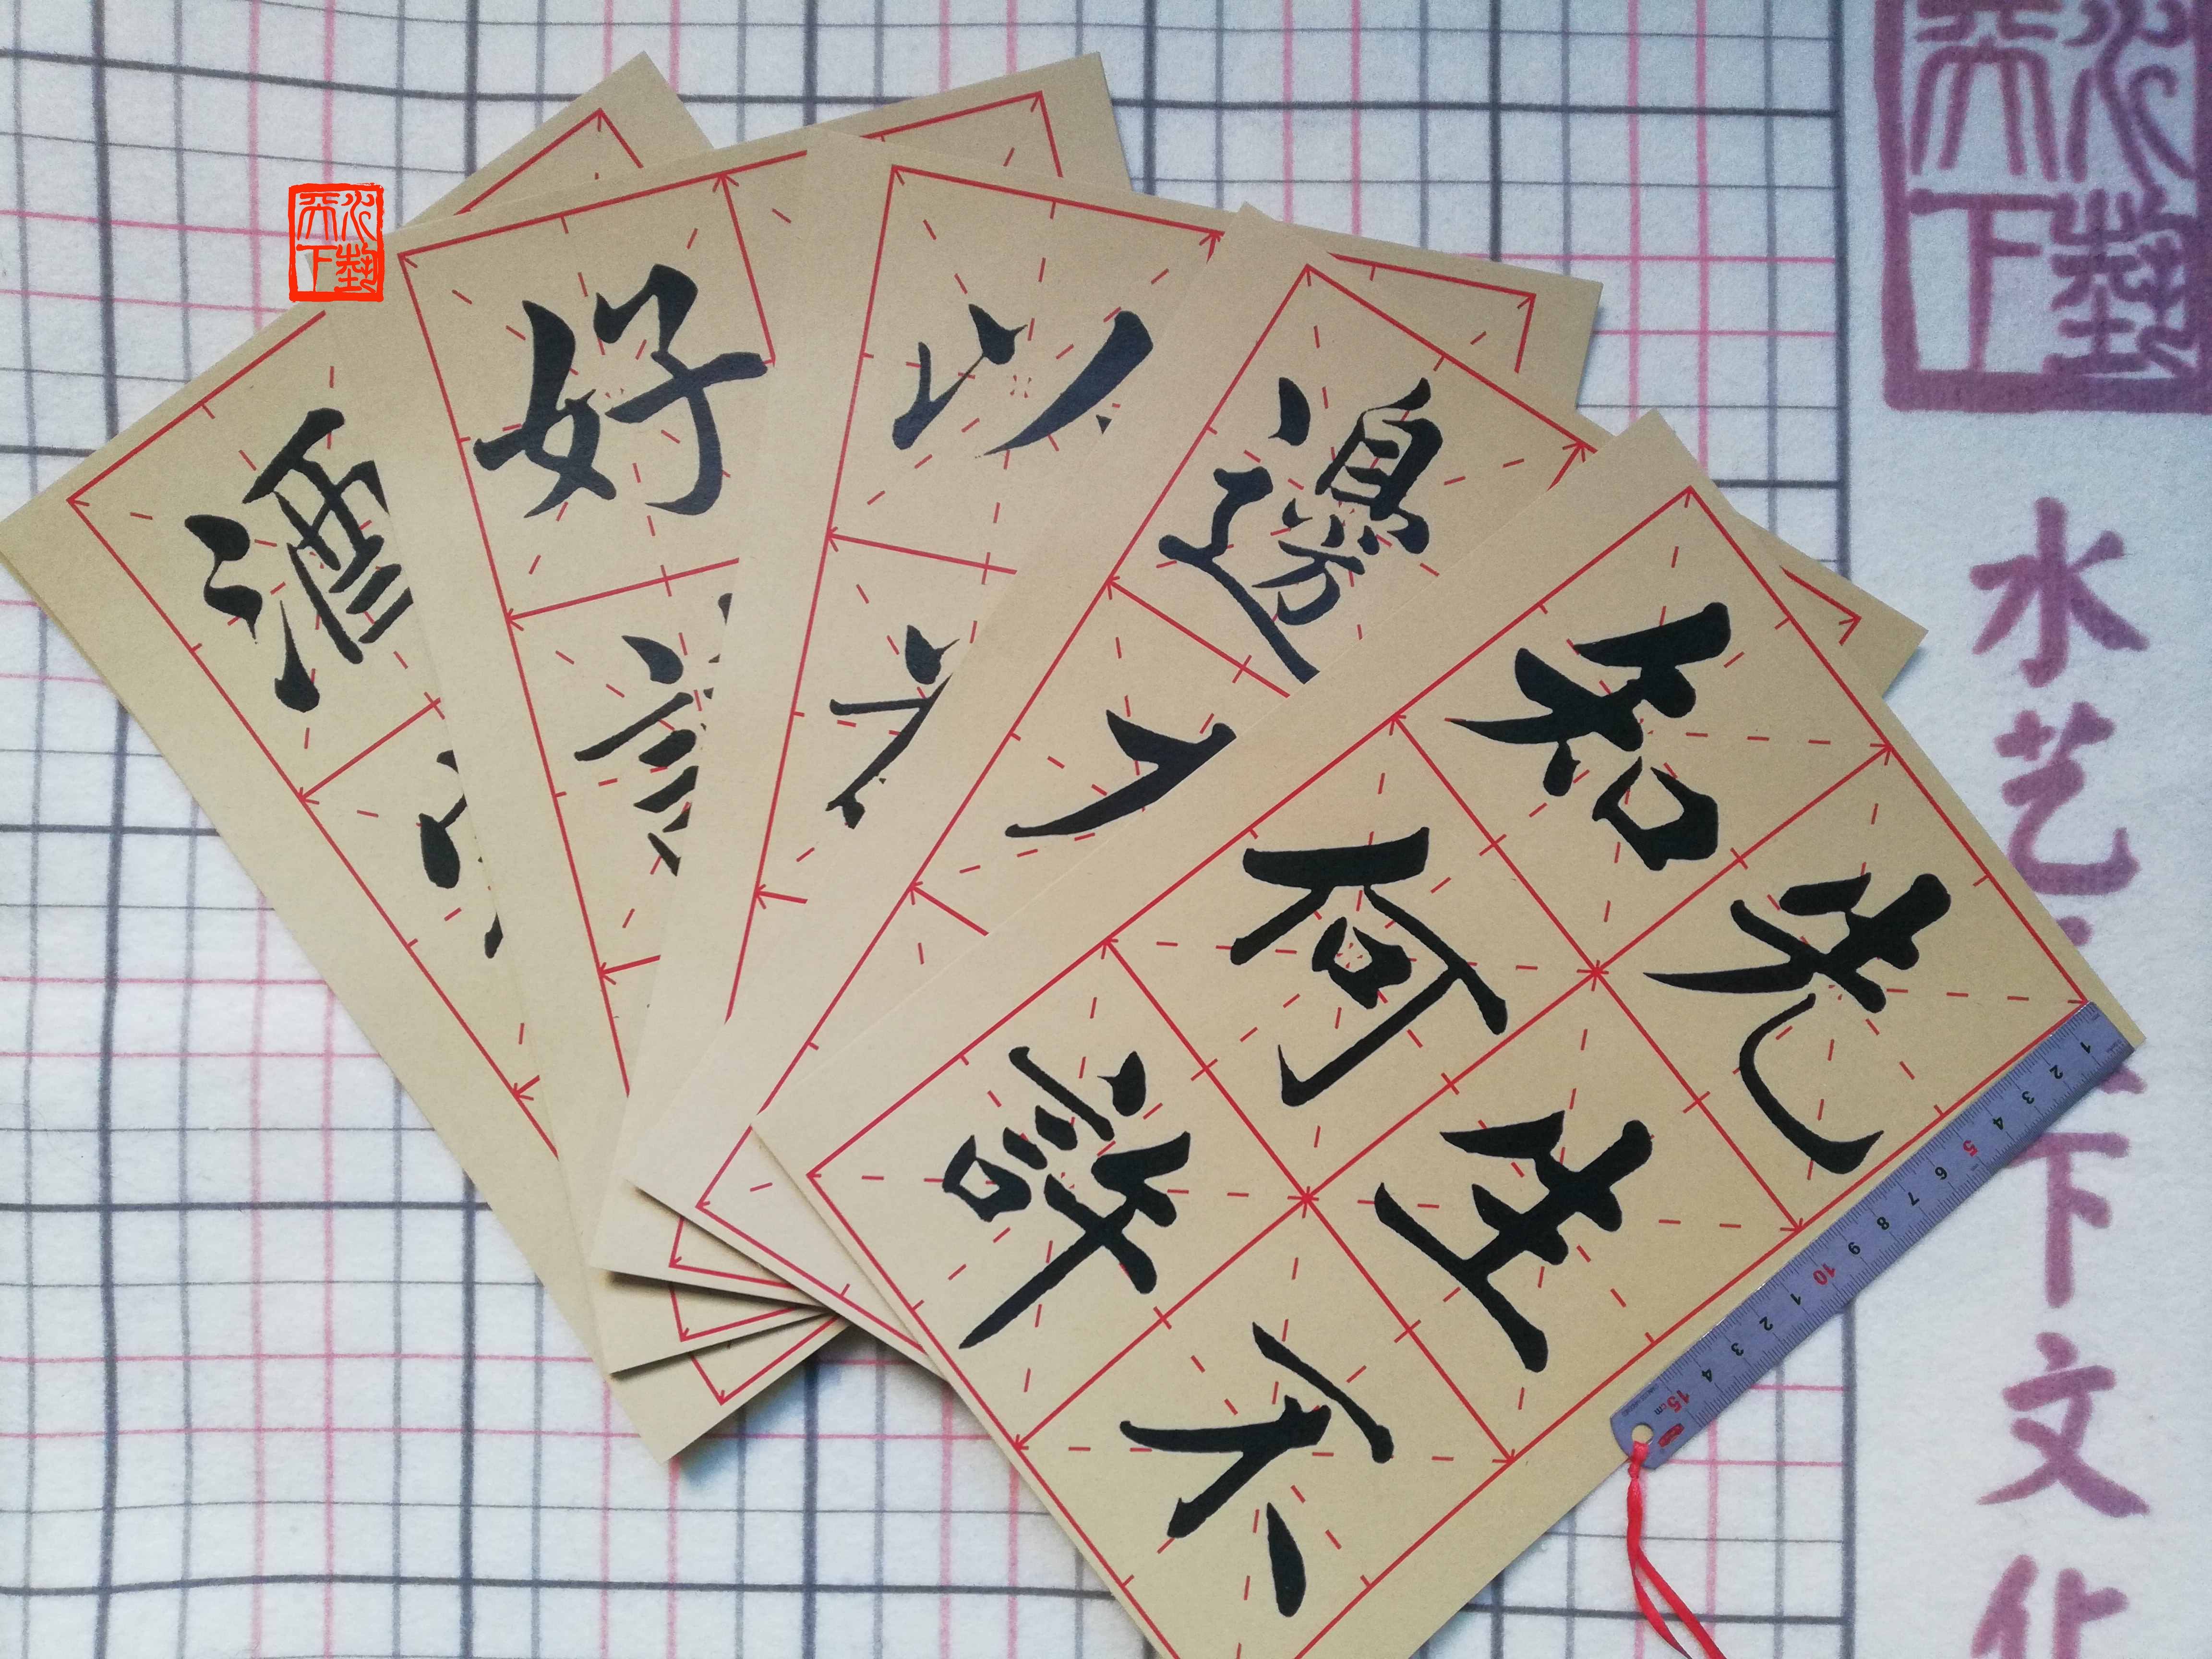 水藝天下
酒
好
以
邊
先生不
知何許
水藝天下
水艺
下文化
1 2 3 4 5 6 7 8 9 10 1 2 3 4 15cm